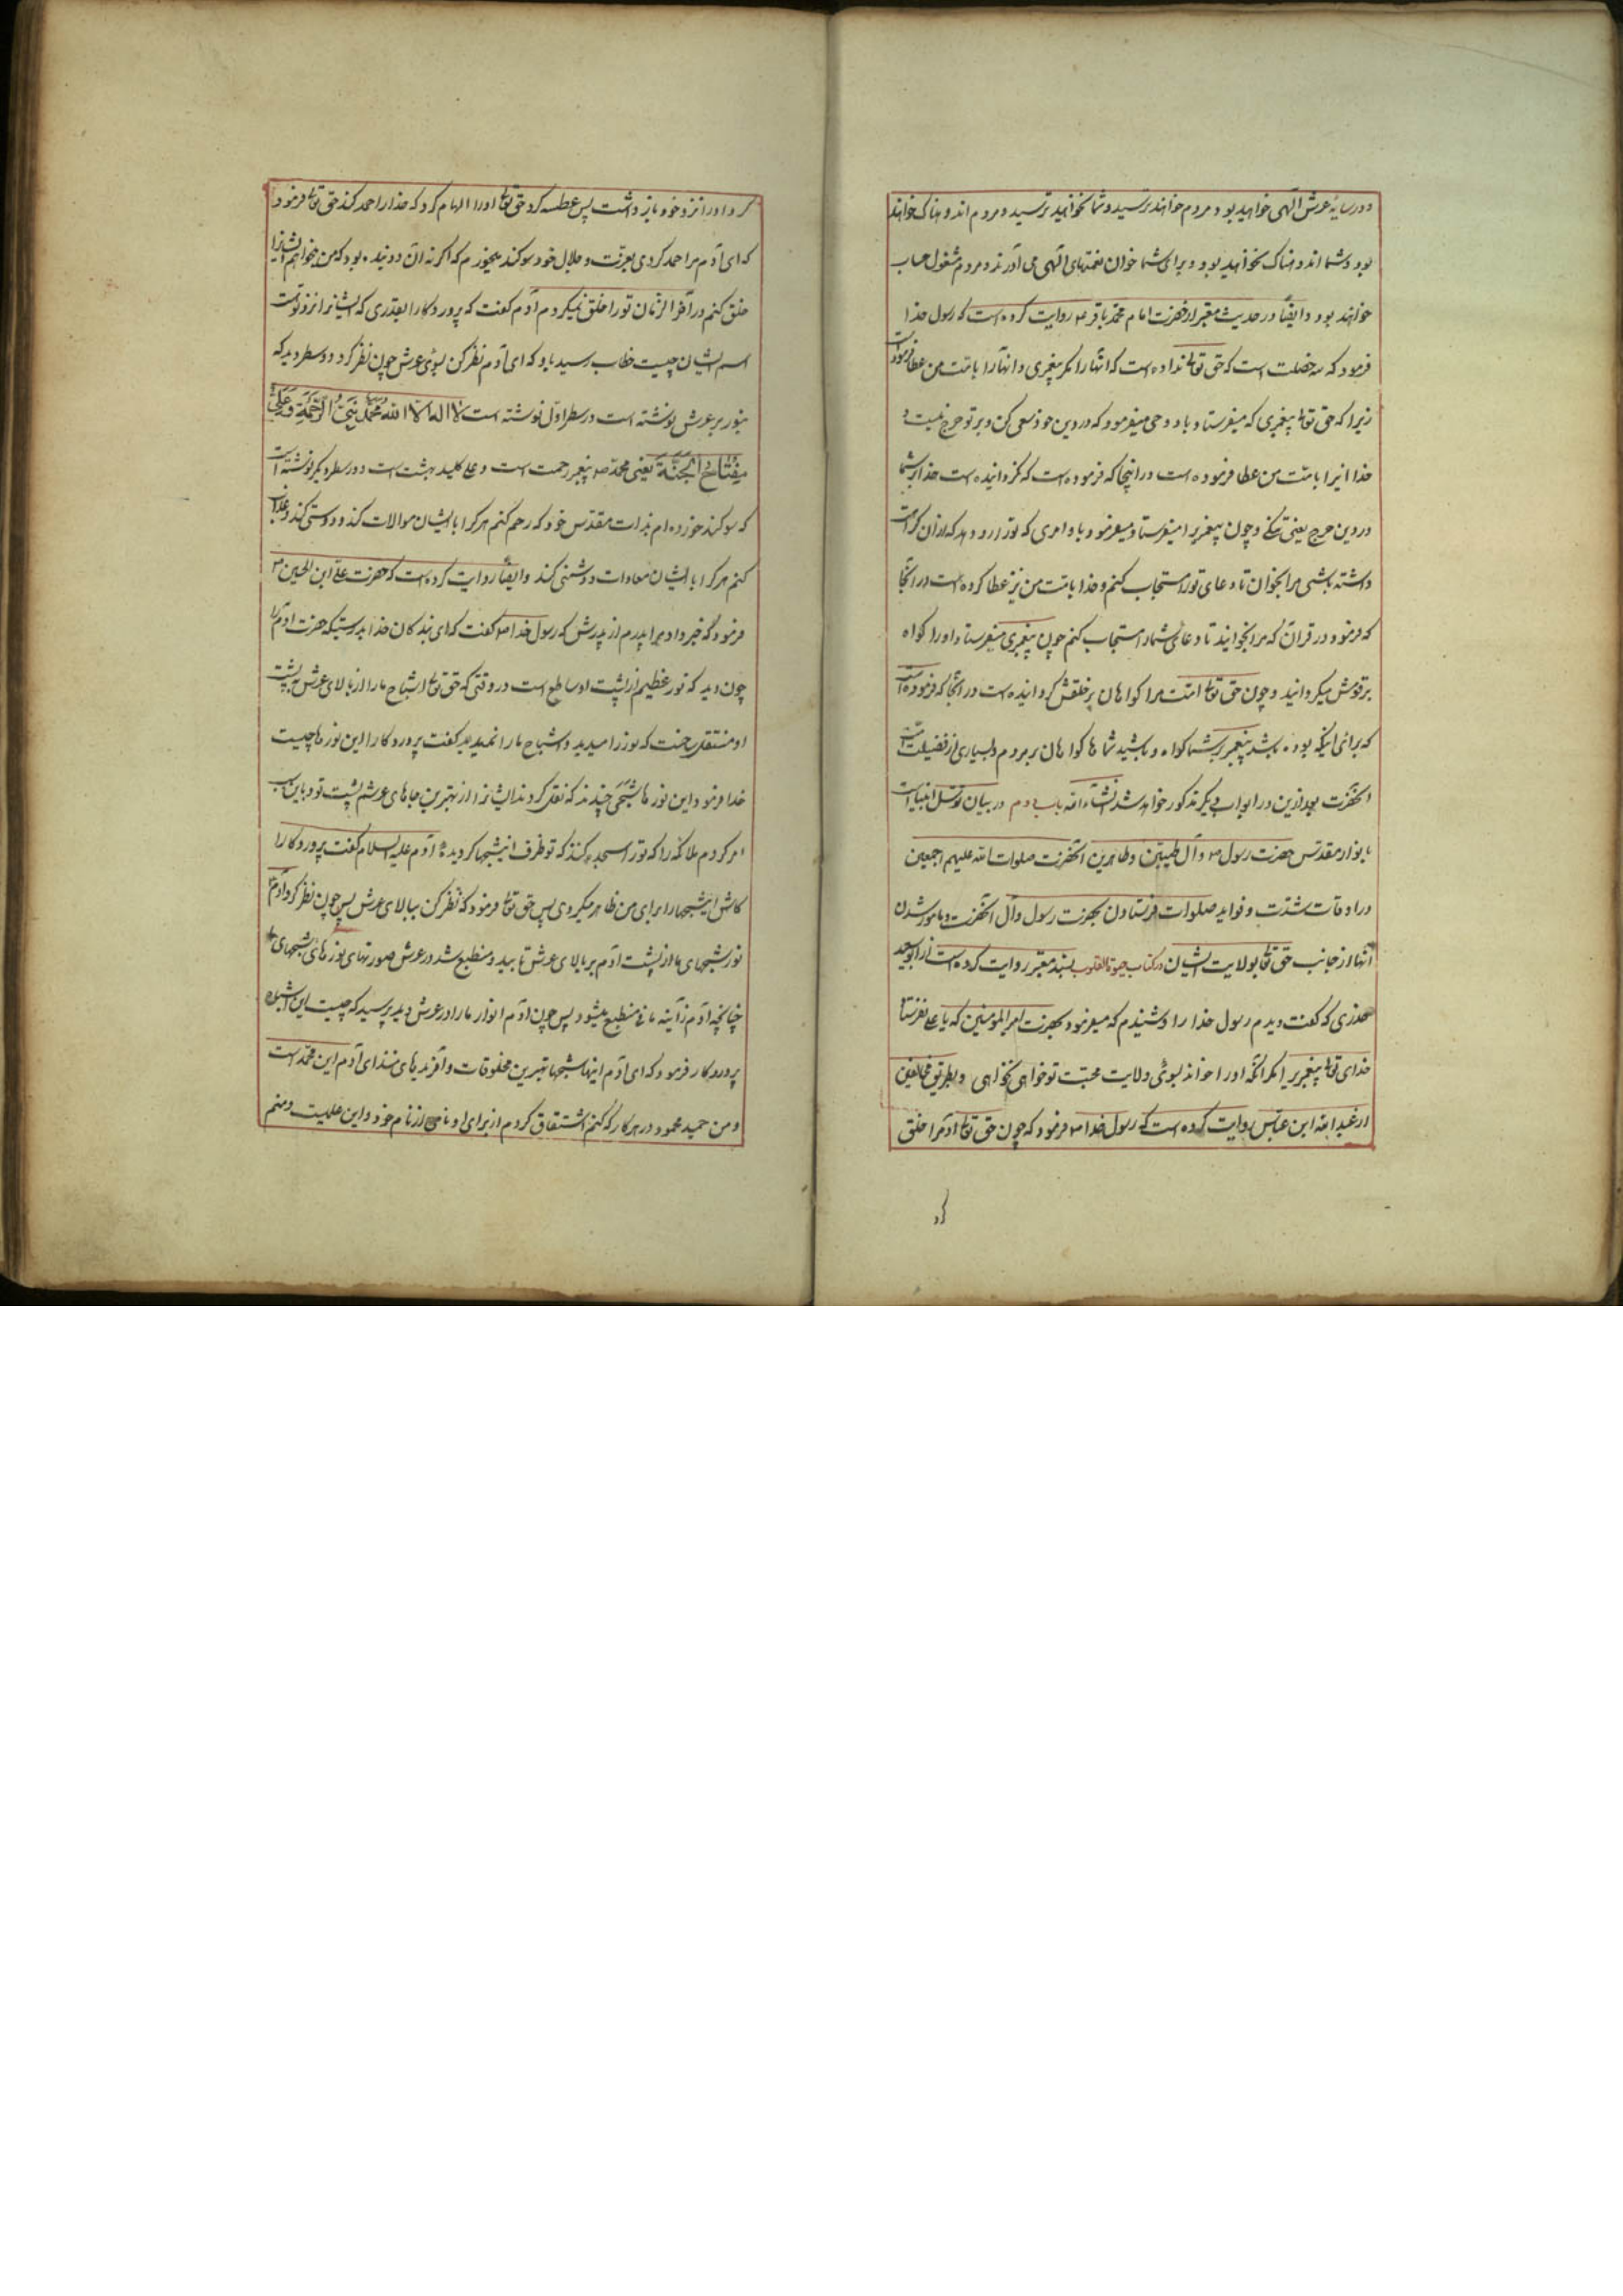 و در سایهٔ عرش الهی خواهید بود و مردم خواهند ترسید و شما نخواهید ترسید و مردم اندوهناک خواهند
بود و شما اندوهناک نخواهید بود و برای شما خوان نعمتهای الهی می آورند و مردم مشغول حساب
خواهند بود و ایضاً در حدیث معتبر از حضرت امام محمد باقر ع روایت کرده است که رسول خدا
فرمود که سه خصلت است که حق تع نداده است که آنها را مگر پیغمبری و آنها را بامت من عطا فرموده است
زیرا که حق تع پیغمبری که میفرستاد باو وحی میفرمود که در دین خود سعی کن و بر تو حرج نیست و
خدا اینرا بامت من عطا فرموده است در اینجا که فرموده است که نگردانیده است خدا بر شما
در دین حرج یعنی تنگی و چون پیغمبر را میفرستاد میفرمود باو امری که تو را رو دهد که از آن کراهت
داشته باشی مرا بخوان تا دعای تو را مستجاب کنم و خدا بامت من نیز عطا کرده است در آنجا
که فرمود در قرآن که مرا بخوانید تا دعای شما را مستجاب کنم چون پیغمبری میفرستاد او را گواه
بر قومش میگردانید و چون حق تع امت مرا گواهان بر خلقش گردانیده است در آنجا که فرموده است
که برای اینکه بوده باشد پیغمبر بر شما گواه و باشید شما ها گواهان بر مردم و بسیاری از فضیلت امت
آنحضرت بعد ازین در ابواب دیگر مذکور خواهد شد انشاء الله باب دوم در بیان توسل انبیا است
بانوار مقدس حضرت رسول ص و آل طیبین و طاهرین آنحضرت صلوات الله علیهم اجمعین
در اوقات شدت و فواید صلوات فرستادن بحضرت رسول و آل آنحضرت و مامور شدن
آنها از جانب حق تع بولایت ایشان در کتاب حیوة القلوب بسند معتبر روایت کرده است از ابو سعید
خدری که گفت دیدم رسول خدا را و شنیدم که میفرمود بحضرت امیر المومنین که یا علی نفرستاد
خدای تع پیغمبری را مگر آنکه او را خواند بسوی ولایت محبت تو خواهی نخواهی و بطریق مخالفین
از عبد الله ابن عباس روایت کرده است که رسول خدا ص فرمود که چون حق تع آدم را خلق
کرد
کرد او را نزد خود باز داشت پس عطسه کرد حق تع او را الهام کرد که خدا را حمد کند حق تع فرمود
که ای آدم مرا حمد کردی بعزت و جلال خود سوگند میخورم که اگر نه آن دو بنده بود که من میخواهم ایشانرا
خلق کنم در آخر الزمان تو را خلق نمیکردم آدم گفت که پروردگارا بقدری که ایشانرا نزد تو است
اسم ایشان چیست خطاب رسید باو که ای آدم نظر کن بسوی عرش چون نظر کرد دو سطر دید که
بنور بر عرش نوشته است در سطر اول نوشته است لا اله الا الله محمد نبی الرحمة و علی
مفتاح الجنة یعنی محمد ص پیغمبر رحمت است و علی کلید بهشت است و در سطر دیگر نوشته است
که سوگند خورده ام بذات مقدس خود که رحم کنم هر که را با ایشان موالات کند و دوستی کند و عذاب
کنم هر که را با ایشان معادات و دشمنی کند و ایضاً روایت کرده است که حضرت علی ابن الحسین ع
فرمود که خبر داد مرا پدرم از پدرش که رسول خدا ص گفت که ای بندگان خدا بدرستیکه حضرت آدم ع
چون دید که نور عظیم از پشت او ساطع است در وقتی که حق تع اشباح ما را از بالای عرش به پشت
او منتقل ساخت که نور را میدید و اشباح ما را نمیدید گفت پروردگارا این نور ها چیست
خدا فرمود این نور ها شبحی چندند که نقل کردند ایشانرا از بهترین جاهای عرشم به پشت تو و باین سبب
امر کردم ملائکه را که تو را سجده کنند که تو ظرف این شبحها گردیدهٔ آدم علیه السلام گفت پروردگارا
کاش این شبحها را برای من ظاهر میکردی پس حق تع فرمود که نظر کن ببالای عرش پس چون نظر کرد آدم
نور شبحهای ما از پشت آدم بر بالای عرش تابید و منطبع شد در عرش صورتهای نور های شبحهای ما
چنانچه آدم در آینه صافی منطبع میشود پس چون آدم انوار ما را در عرش دید پرسید که چیست این اشباح
پروردگار فرمود که ای آدم اینها شبحها بهترین مخلوقات و آفریدهای منند ای آدم این محمد است
و من حمید محمود در هر کار که کنم اشتقاق کردم از برای او نامی از نام خود و این علیست و منم